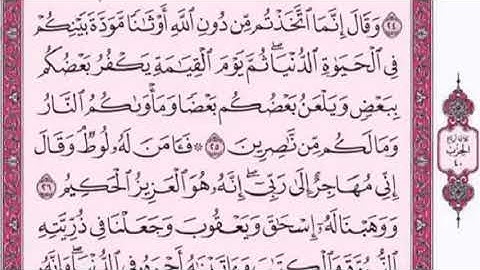 ٢٤ وَقَالَ إِنَّمَا ٱتَّخَذْتُم مِّن دُونِ ٱللَّهِ أَوْثَٰنًا مَّوَدَّةَ بَيْنِكُمْ
فِى ٱلْحَيَوٰةِ ٱلدُّنْيَا ۖ ثُمَّ يَوْمَ ٱلْقِيَٰمَةِ يَكْفُرُ بَعْضُكُم
بِبَعْضٍ وَيَلْعَنُ بَعْضُكُم بَعْضًا وَمَأْوَىٰكُمُ ٱلنَّارُ
وَمَا لَكُم مِّن نَّٰصِرِينَ ٢٥ ۞ فَـَٔامَنَ لَهُۥ لُوطٌ ۘ وَقَالَ
إِنِّى مُهَاجِرٌ إِلَىٰ رَبِّىٓ ۖ إِنَّهُۥ هُوَ ٱلْعَزِيزُ ٱلْحَكِيمُ ٢٦
وَوَهَبْنَا لَهُۥٓ إِسْحَٰقَ وَيَعْقُوبَ وَجَعَلْنَا فِى ذُرِّيَّتِهِ
ٱلنُّبُوَّةَ وَٱلْكِتَٰبَ وَءَاتَيْنَٰهُ أَجْرَهُۥ فِى ٱلدُّنْيَا ۖ وَإِنَّهُۥ
الحزب
٤٠